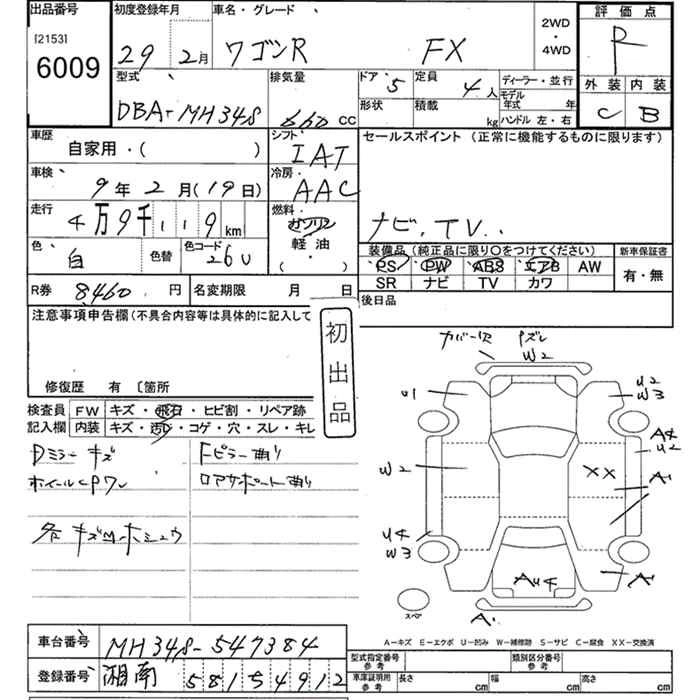 出品番号 初度登録年月 車名・グレード 2WD・4WD 評価点
[2153] 6009 29年 2月 ワゴンR FX R
型式 排気量 ドア 5 定員 4人 ディーラー・並行 外装 内装
DBA-MH34S 660 CC 形状 積載 kg モデル年式 年 C B
ハンドル 左・右
車歴 シフト セールスポイント (正常に機能するものに限ります)
自家用・( ) IAT
車検 冷房
9年2月(19日) AAC
走行 燃料
4万9千119km ガソリン ナビ、TV、
軽油
・( )
色 白 色替 色コード 26U 装備品(純正品に限り○をつけてください) 新車保証書
PS PW ABS エアB AW 有・無
SR ナビ TV カワ
R券 8460円 名変期限 月 日 後日品
注意事項申告欄(不具合内容等は具体的に記入して
初出品
修復歴 有 〔箇所
検査員 FW キズ・飛石・ヒビ割・リペア跡
記入欄 内装 キズ・汚レ・コゲ・穴・スレ・キレ
Dミラー キズ Fピラー曲り
ホイールCPワレ ロアサポート曲り
各キズ凹ホシュウ
カバーワレ Pズレ
W2
U1 U2
W3
A4
U2
W2 XX A1
U4
W3
A1
AU4
A1
スペア
A-キズ E-エクボ U-凹み W-補修跡 S-サビ C-腐食 XX-交換済
車台番号 MH34S-547384 型式指定番号 参考 類別区分番号 参考
登録番号 湘南 581 そ 4912 車庫証明用 参考 長さ cm 幅 cm 高さ cm